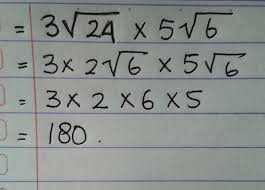 = 3√24 × 5√6
= 3 × 2√6 × 5√6
= 3 × 2 × 6 × 5
= 180.